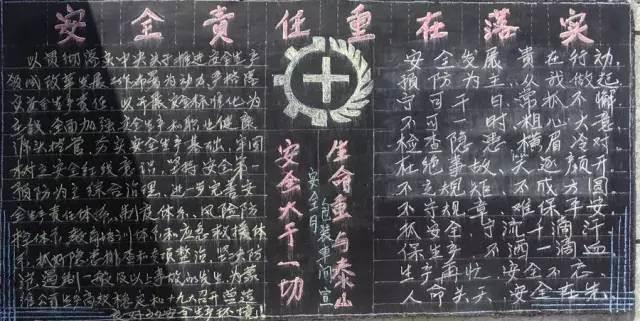 安全責任重在落实
以贯彻落实中央关于推进安全生产
领域改革发展工作部署为动力,严格落
实安全生产责任,以开展安全标准化为
主线,全面加强安全生产和职业健康
源头控管,夯实安全生产基础,牢固
树立安全红线意识,坚持安全第一
预防为主综合治理,进一步完善安
全生产责任体系、制度体系、风险防
控体系、教育培训体系和应急救援体
系,抓好隐患排查和专项整治,坚决防
范遏制一般及以上事故的发生,为
公司生产高效稳定和十九大召开营造
良好的安全生产环境!
生命重与泰山
安全大于一切
包装车间宣
安全月
安全发展,贵在行动,
预防为主,从我做起
宁可千日常抓不懈
不可一时粗心大意
检查隐患横眉冷对
绝事故,笑颜开
不立规矩不成方圆
不守规章难保平安
抓安全流十滴汗
保生产不洒一滴血
生产再忙,安全不忘
人命关天,安全在先